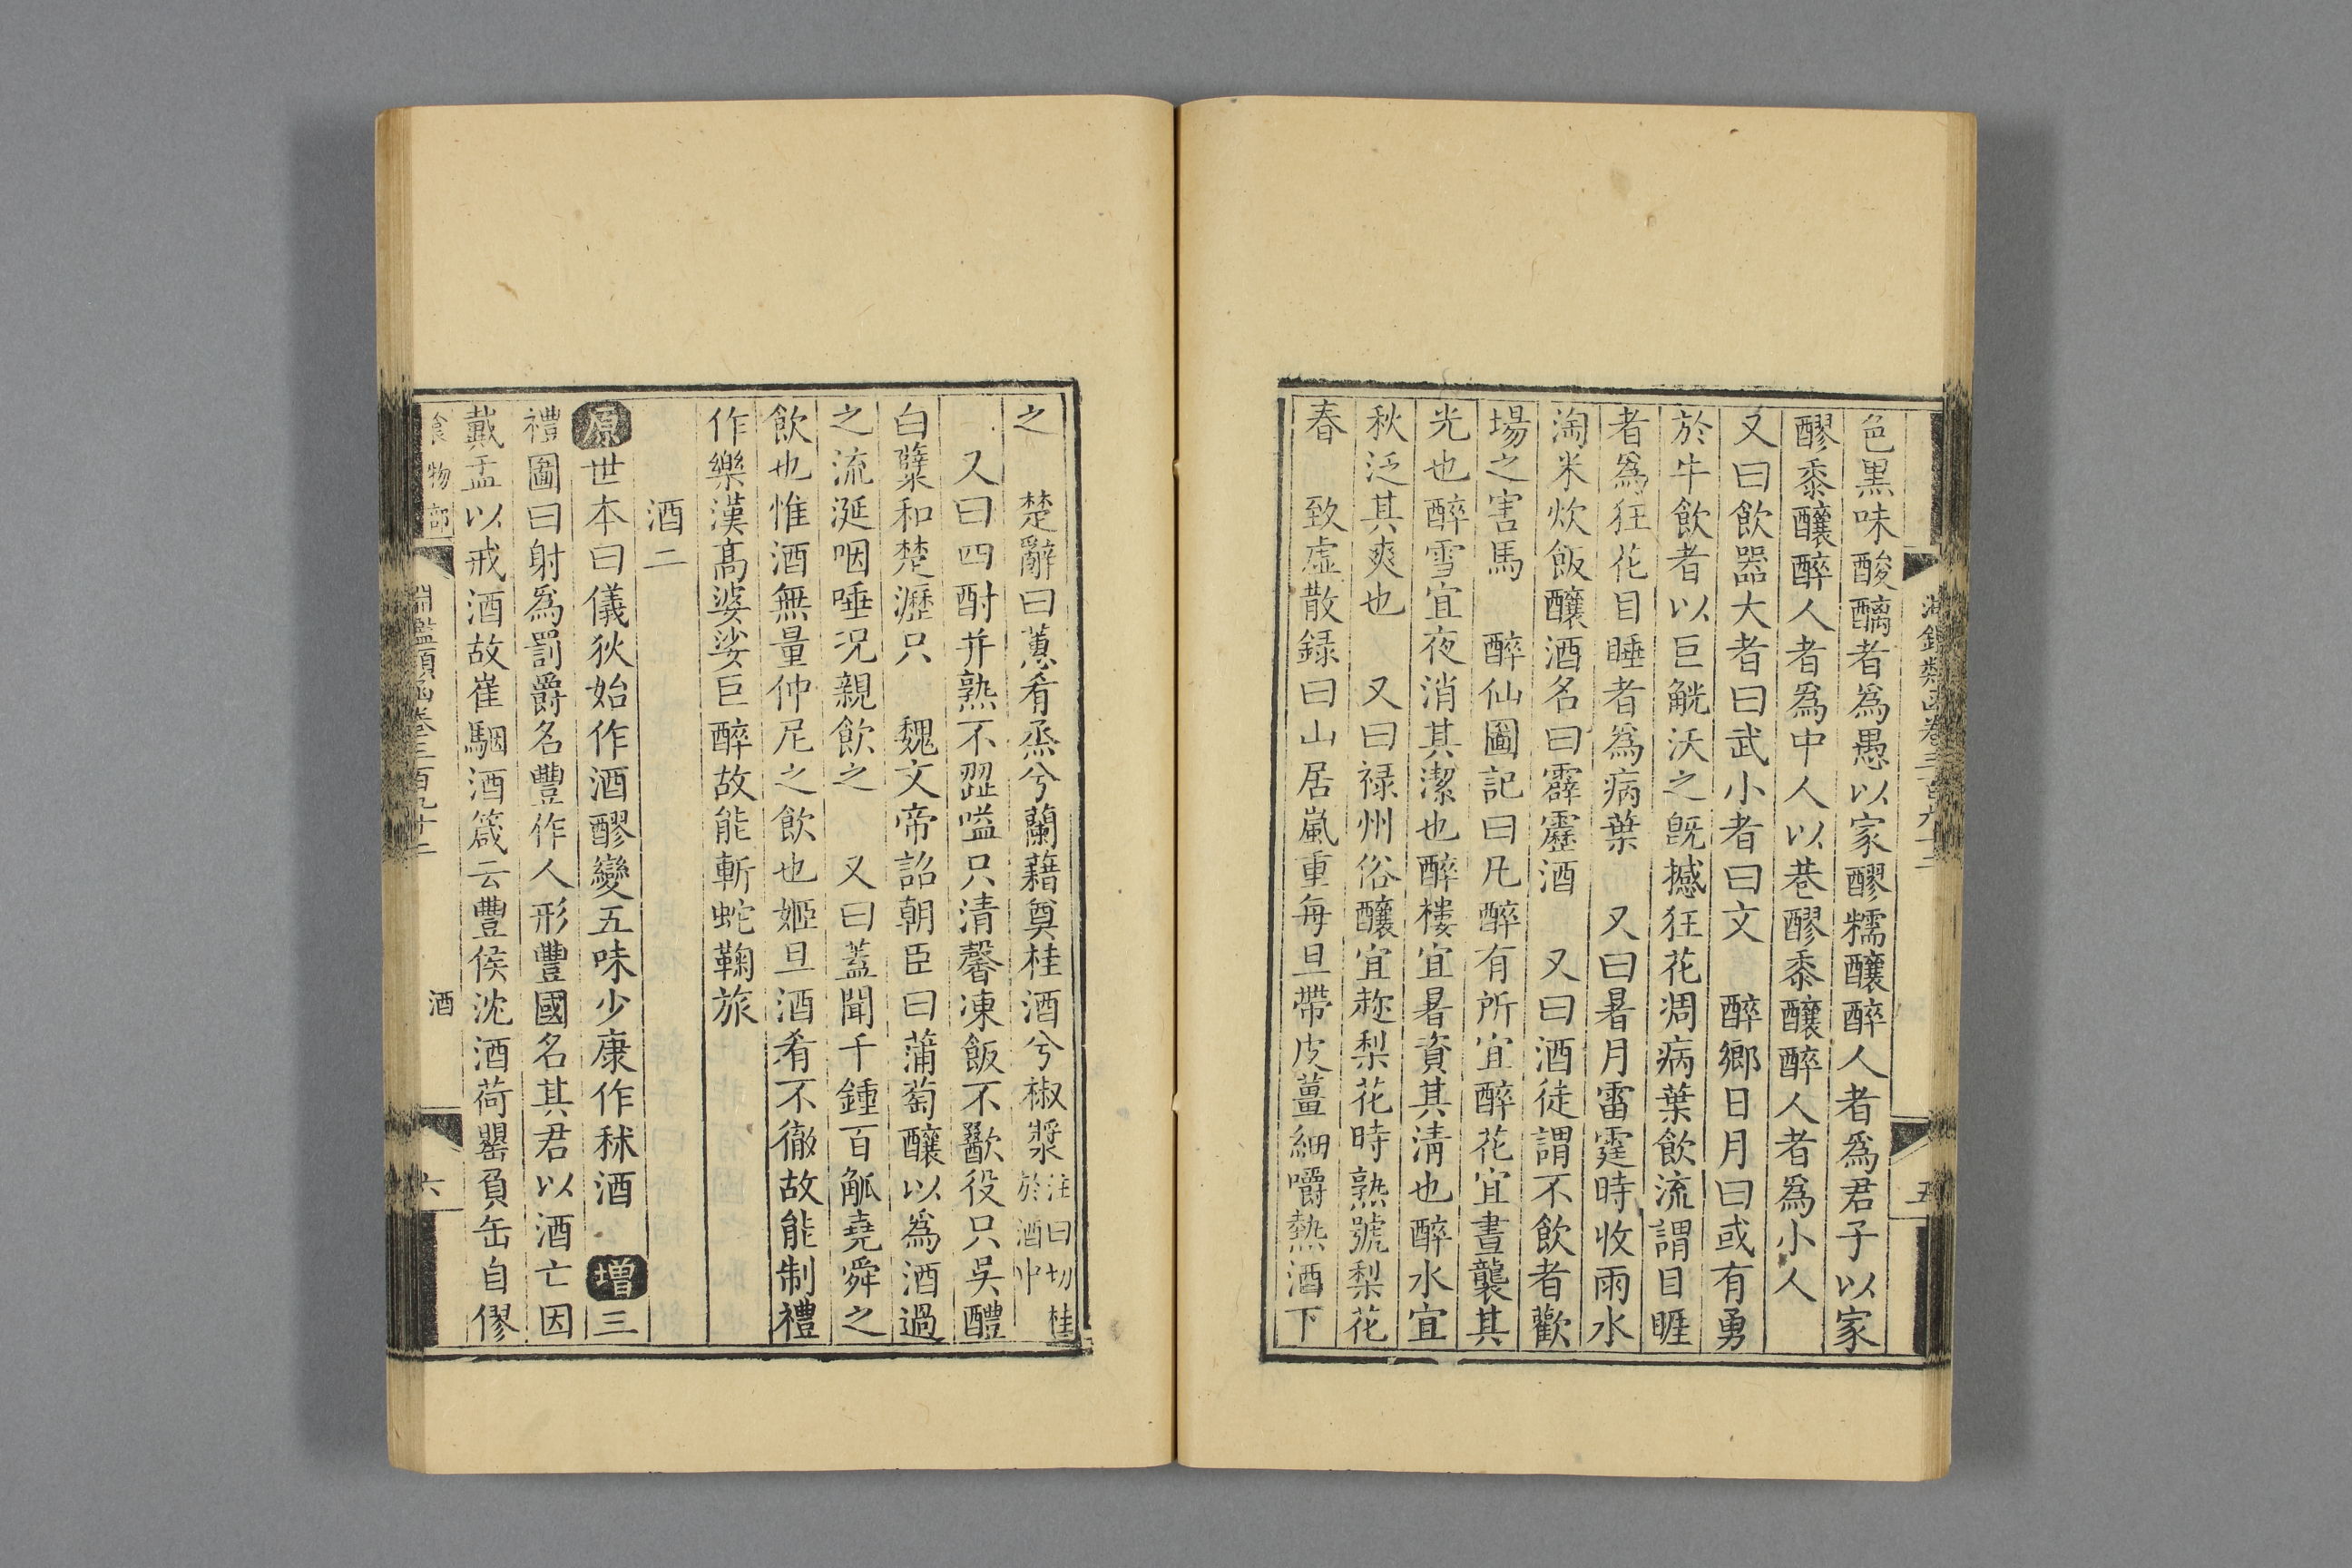 淵鑑類函卷三百九十二
五
色黒味酸醨者爲愚以家醪糯釀醉人者爲君子以家
醪黍釀醉人者爲中人以巷醪黍釀醉人者爲小人
又曰飲器大者曰武小者曰文 醉鄉日月曰或有勇
於牛飲者以巨觥沃之旣撼狂花凋病葉飲流謂目睚
者爲狂花目睡者爲病葉 又曰暑月雷霆時收雨水
淘米炊飯釀酒名曰霹靂酒 又曰酒徒謂不飲者歡
場之害馬 醉仙圖記曰凡醉有所宜醉花宜晝襲其
光也醉雪宜夜消其潔也醉樓宜暑資其清也醉水宜
秋泛其爽也 又曰禄州俗釀宜趂梨花時熟號梨花
春 致虚散録曰山居嵐重每旦帶皮薑細嚼熱酒下
之 楚辭曰蕙肴烝兮蘭藉奠桂酒兮椒漿注曰切桂於酒中
又曰四酎并熟不歰嗌只清馨凍飯不歠役只吳醴
白糵和楚瀝只 魏文帝詔朝臣曰蒲萄釀以爲酒過
之流涎咽唾况親飲之 又曰蓋聞千鍾百觚堯舜之
飲也惟酒無量仲尼之飲也姬旦酒肴不徹故能制禮
作樂漢髙婆娑巨醉故能斬蛇鞠旅
酒二
原世本曰儀狄始作酒醪變五味少康作秫酒 增三
禮圖曰射爲罰爵名豐作人形豐國名其君以酒亡因
戴盂以戒酒故崔駰酒箴云豐侯沈酒荷罌負缶自僇
食物部
淵鑑類函卷三百九十二
酒
六